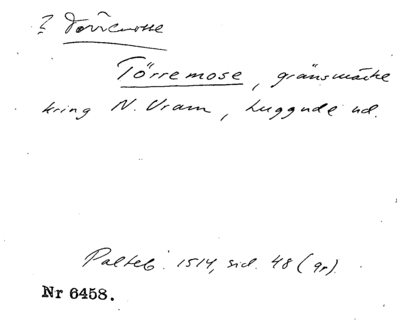 ? Dörremosse
Törremose, gränsmärke
kring N. Vram, Luggude hd.
Palteb. 1514, sid. 48 (gr).
Nr 6458.